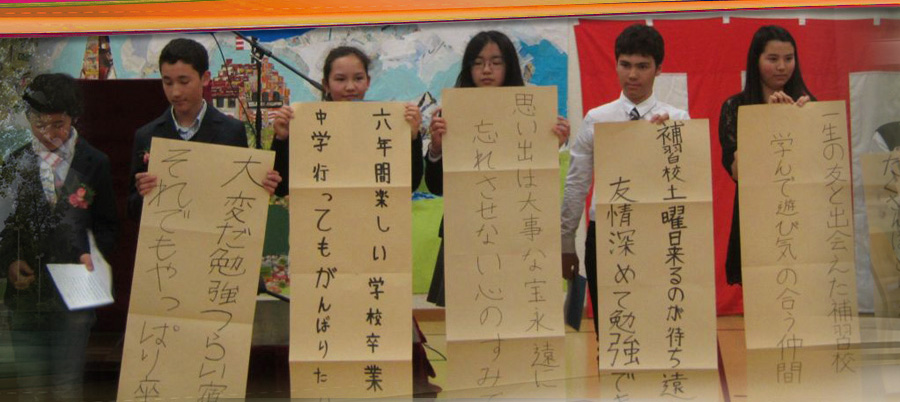 大変だ勉強つらい宿
それでもやっぱり
六年間楽しい学校卒業
中学行ってもがんばりた
思い出は大事な宝永遠に
忘れさせない心のすみ
補習校土曜日来るのが待ち遠
友情深めて勉強で
一生の友と出会えた補習校
学んで遊び気の合う仲間